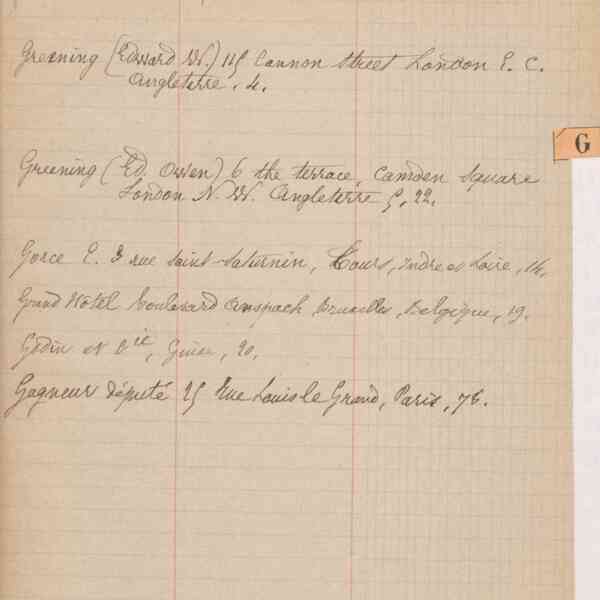 Greening (Edward W.) 115 Cannon Street London E. C.
Angleterre, 4.
G
Greening (Ed. Owen) 6 the terrace, Camden Square
London N. W. Angleterre 5, 22.
Gorce E. 3 rue Saint-Saturnin, Tours, Indre et Loire, 14.
Grand Hôtel boulevard Anspach Bruxelles, Belgique, 19.
Godin et Cie, Guise, 20.
Gagneur député 25 Rue Louis le Grand, Paris, 76.